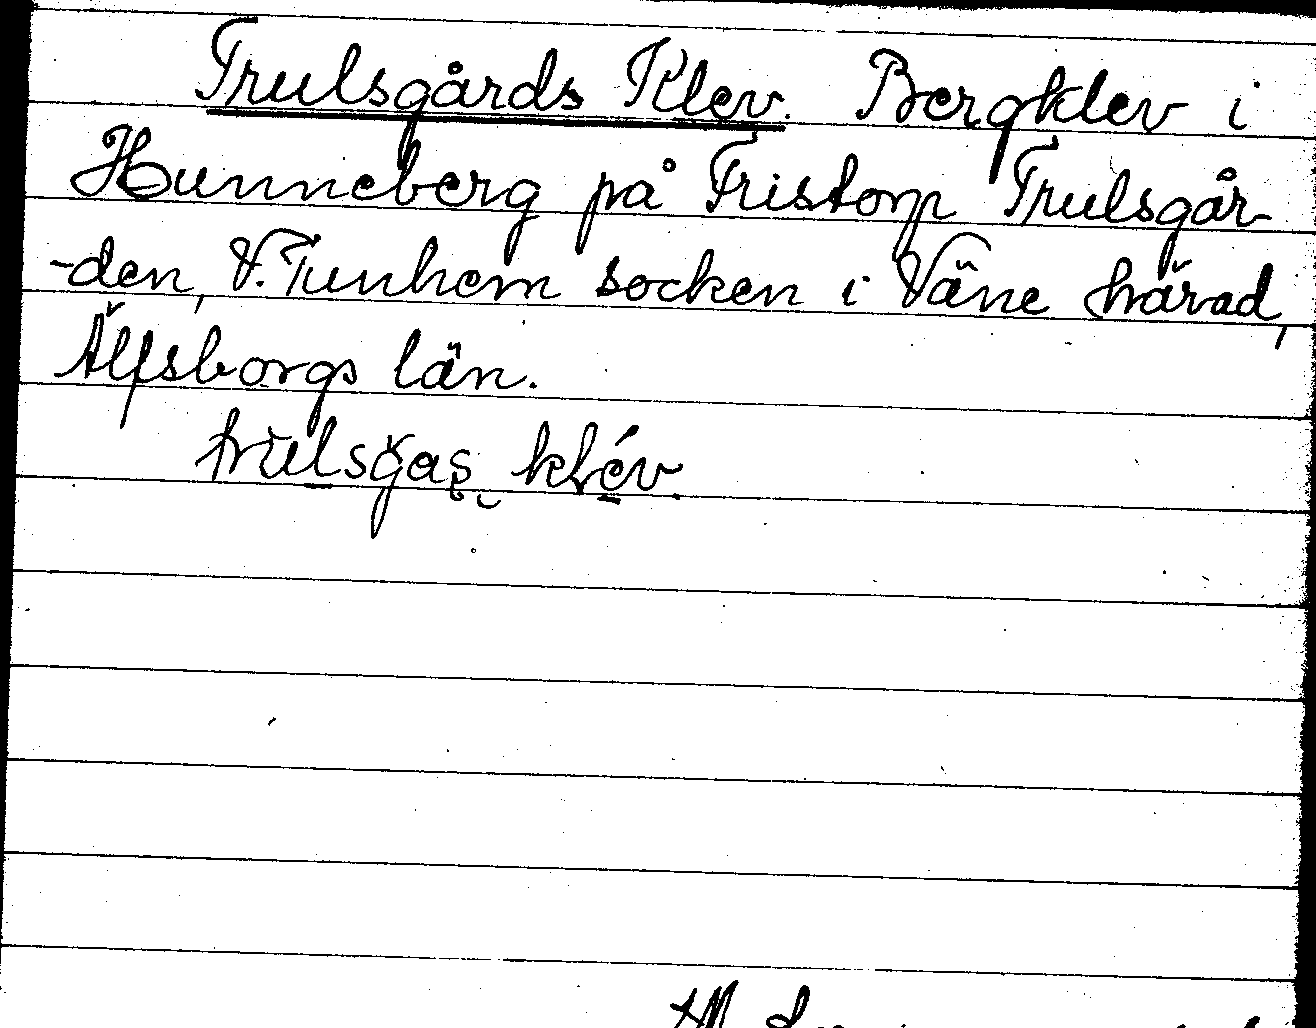 Trulsgårds Klev. Bergklev i
Hunneberg på Fristorp Trulsgår-
-den, V. Tunhem socken i Väne härad,
Älfsborgs län.